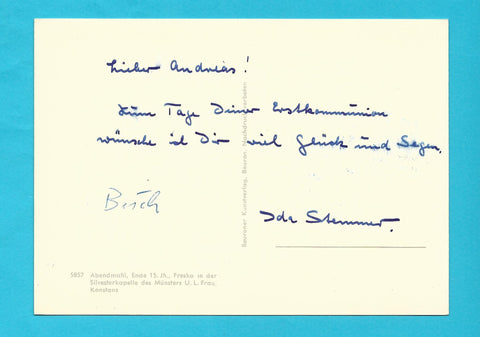 Lieber Andreas!
Zum Tage Deiner Erstkommunion
wünsche ich Dir viel Glück und Segen.
Ida Stemmer.
Beuroner Kunstverlag, Beuron. Nachdruck verboten
5857 Abendmahl, Ende 15. Jh., Freske in der
Silvesterkapelle des Münsters U. L. Frau,
Konstanz